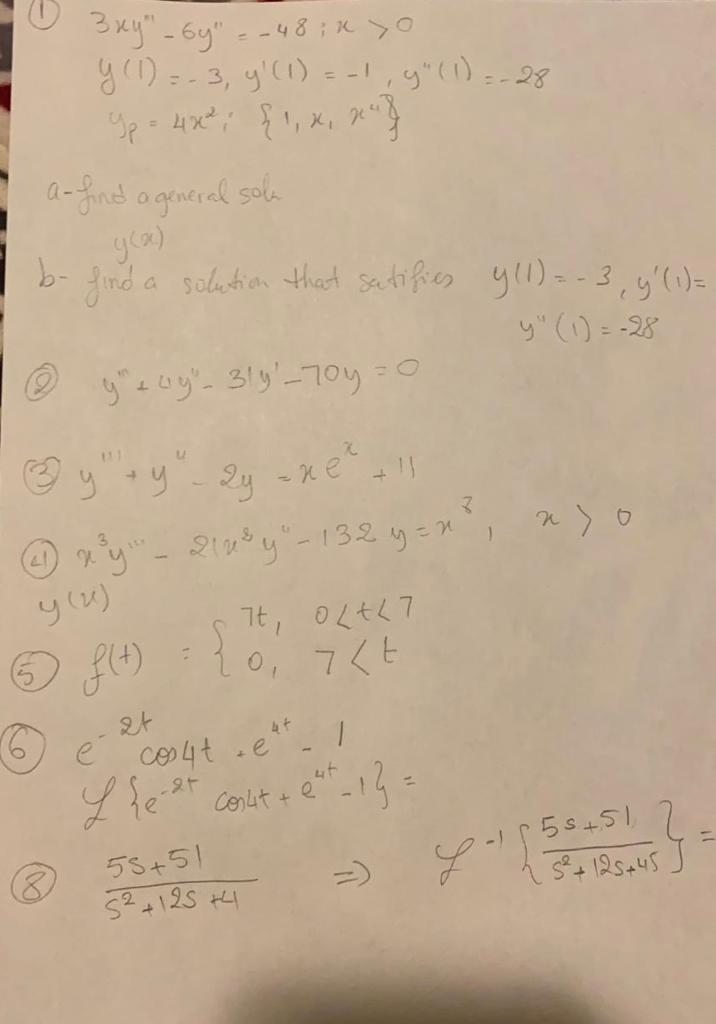 ① 3xy''' - 6y'' = -48 ; x > 0
y(1) = -3, y'(1) = -1, y''(1) = -28
yp = 4x², {1, x, x⁴}
a- find a general soln
y(x)
b- find a solution that satifies y(1) = -3, y'(1) =
y''(1) = -28
② y''' + 4y'' - 31y' - 70y = 0
③ y''' + y'' - 2y = xe^x + 11
④ x³y''' - 21x²y'' - 132y = x³, x > 0
y(x)
⑤ f(t) = { 7t, 0<t<7
0, 7<t
⑥ e^-2t cos4t + e^4t - 1
ℒ{e^-2t cos4t + e^4t - 1} =
⑧ 5s+51 / s²+12s+4 ⇒ ℒ^-1 {5s+51 / s²+12s+45} =